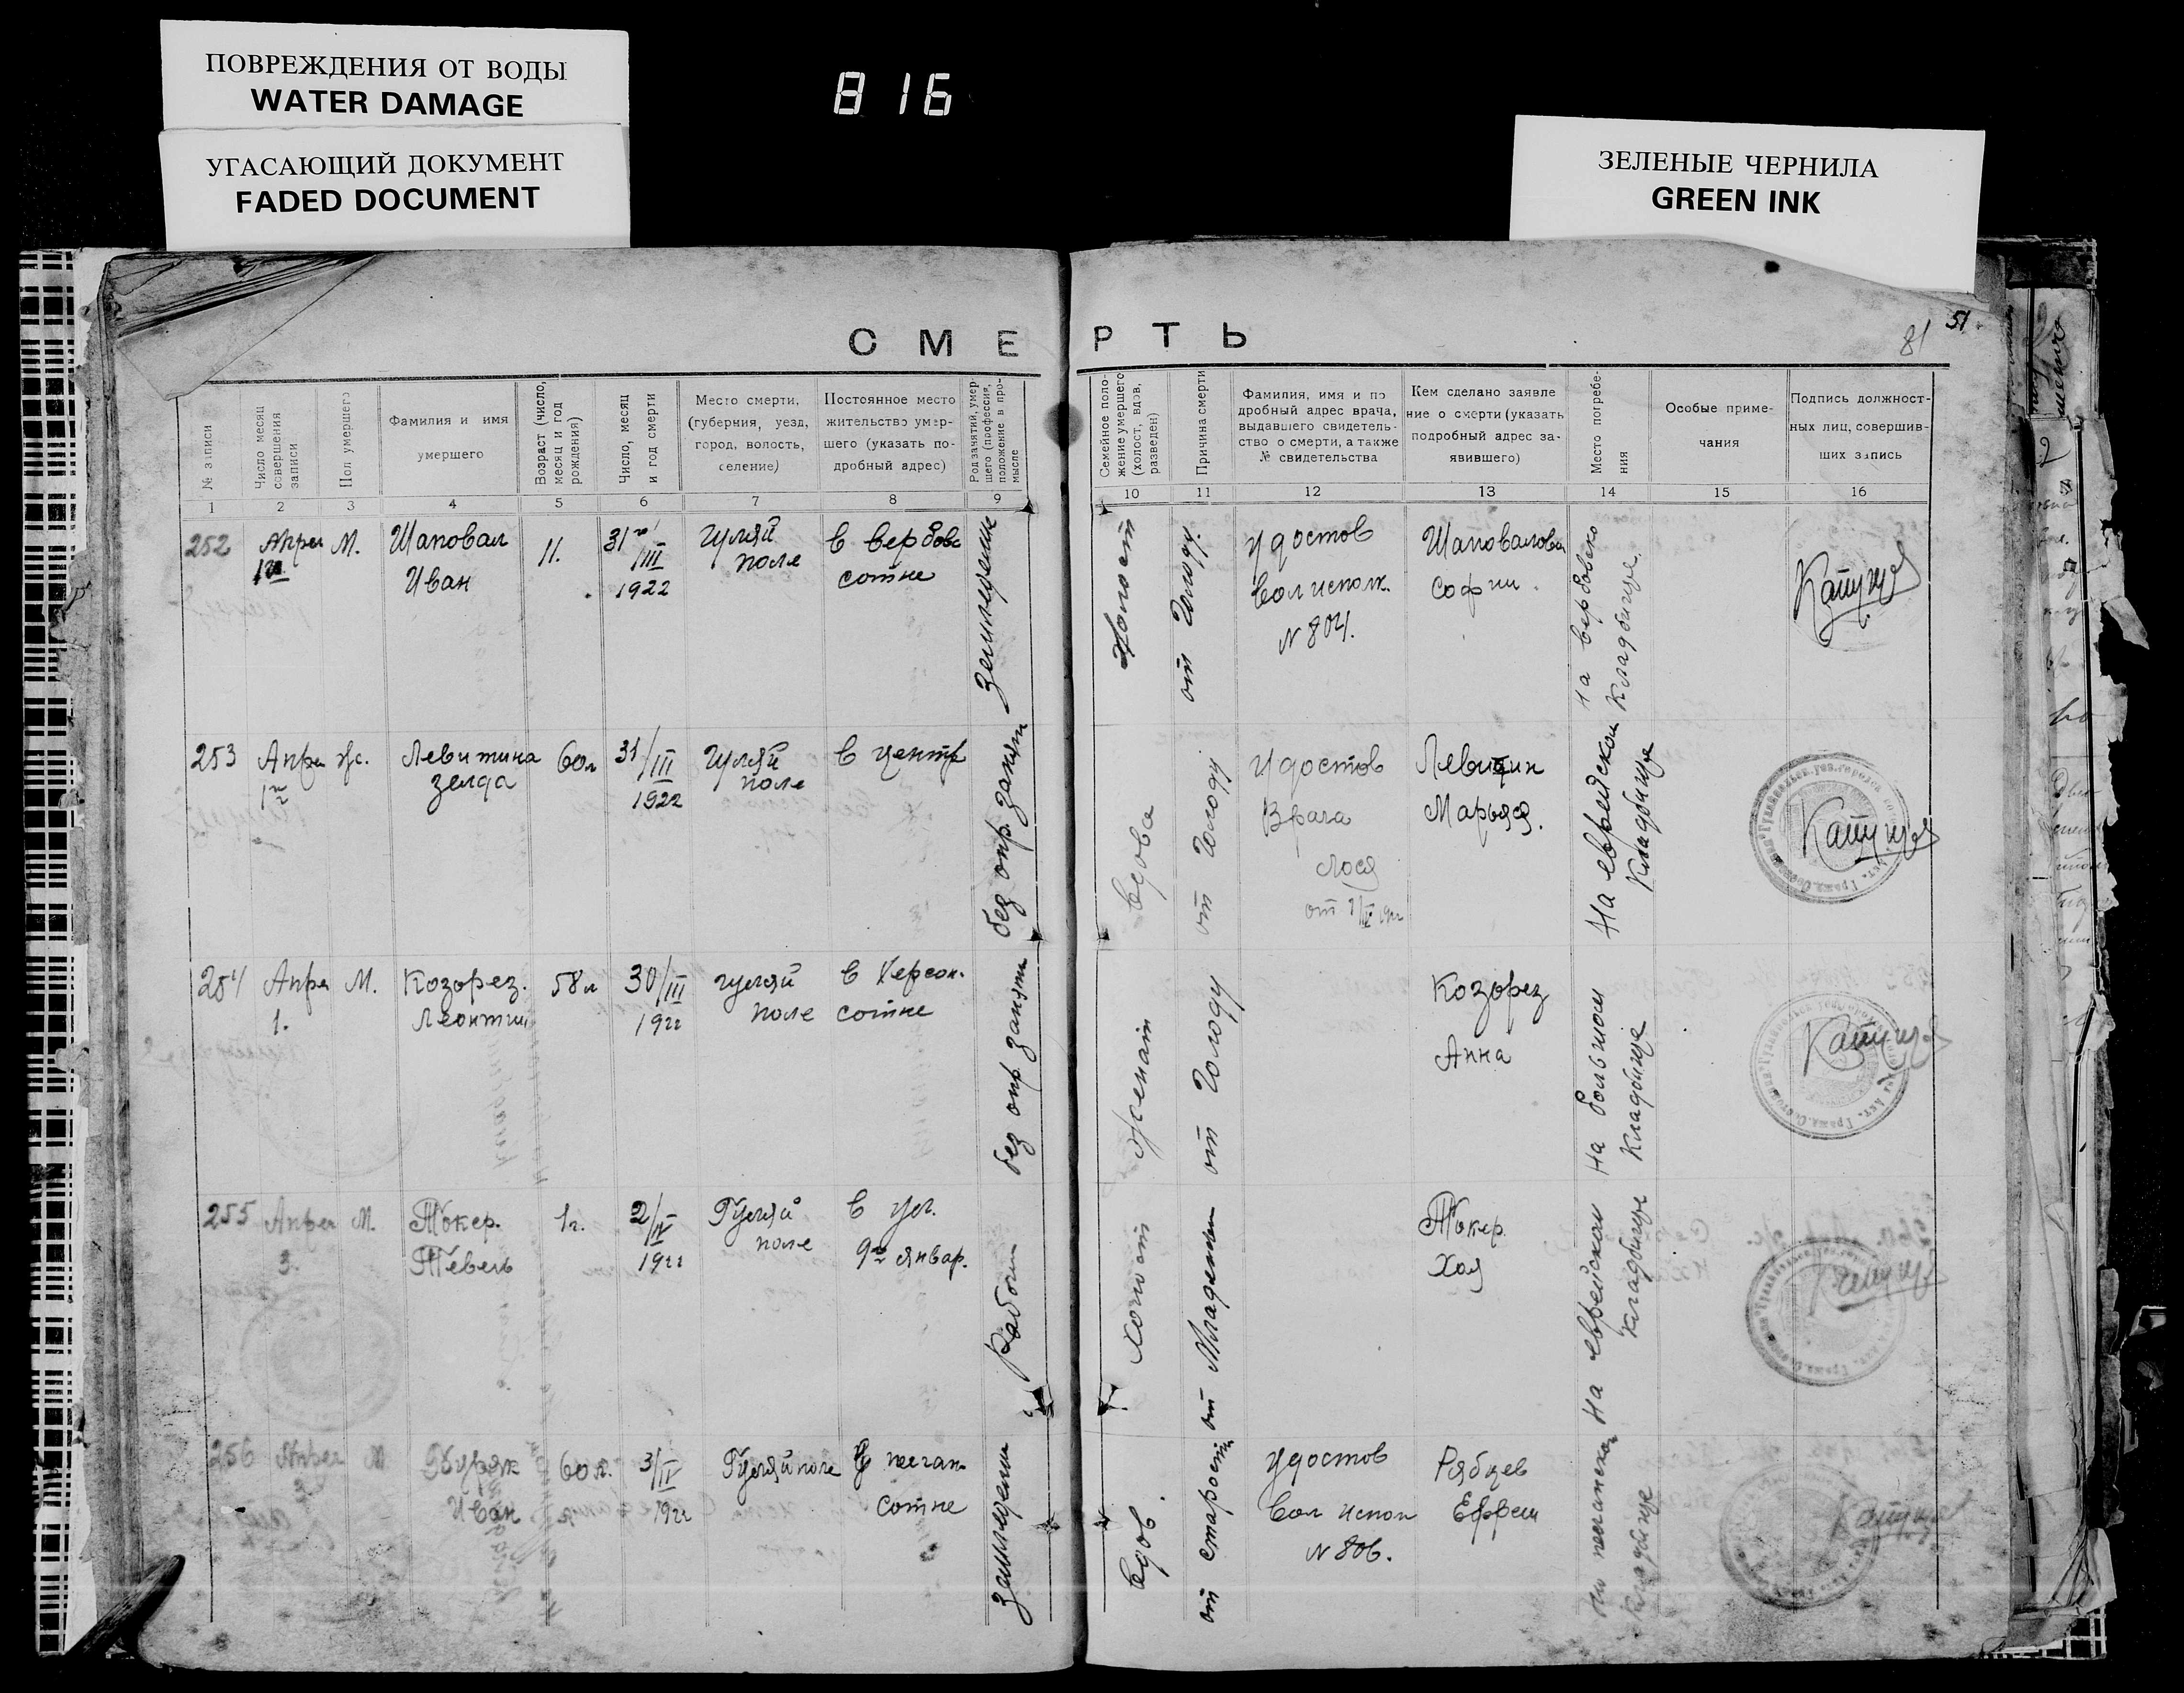 ПОВРЕЖДЕНИЯ ОТ ВОДЫ
WATER DAMAGE
УГАСАЮЩИЙ ДОКУМЕНТ
FADED DOCUMENT
816
ЗЕЛЕНЫЕ ЧЕРНИЛА
GREEN INK
81
51
СМЕРТЬ
№ записи
Число месяц
совершения
записи
Пол умершего
Фамилия и имя
умершего
Возраст (число,
месяц и год
рождения)
Число, месяц
и год смерти
Место смерти,
(губерния, уезд,
город, волость,
селение)
Постоянное место
жительство умер-
шего (указать по-
дробный адрес)
Род занятий, умер-
шего (профессия,
положение в про-
мысле
Семейное поло-
жение умершего
(холост, вдов,
разведен)
Причина смерти
Фамилия, имя и по
дробный адрес врача,
выдавшего свидетель-
ство о смерти, а также
№ свидетельства
Кем сделано заявле
ние о смерти (указать
подробный адрес за-
явившего)
Место погребе-
ния
Особые приме-
чания
Подпись должност-
ных лиц, совершив-
ших запись
1 2 3 4 5 6 7 8 9 10 11 12 13 14 15 16
252
Апрел
М.
Шаповал
Иван
11.
31
III
1922
Гуляй
поле
в вербовс
сотне
Холост
от Голоду.
Удостов
Волисполк.
N 804.
Шаповалова
Софии.
На вербовско
кладбище.
253
Апре
ж.
Левитина
Зелда
60л
31/III
1922
Гуляй
поле
в центр
без опр. занят
Вдова
от Голоду
Удостов
Врача
Лося
Левитин
На еврейском
кладбище
254
Апре
1.
М.
Козорез.
Леонтий
58л
30/III
1922
Гуляй
поле
в Херсон.
сотне
без опр занят
Женат
от Голоду
Козорез
Анна
На больном
кладбище
255
Апрел
3.
М.
Токер.
Тевель
1г.
2/IV
1922
Гуляй
поле
в ул.
9го Январ.
Рабоч
Холост
от Младенч
Токер.
Хая
На еврейском
кладбище
256
Апрел
М
Иван
60л.
3/IV
1922
Гуляйполе
сотне
Вдов.
от старости
Удостов
Вол испол
N 806.
Рябцев
Ефрем
кладбище